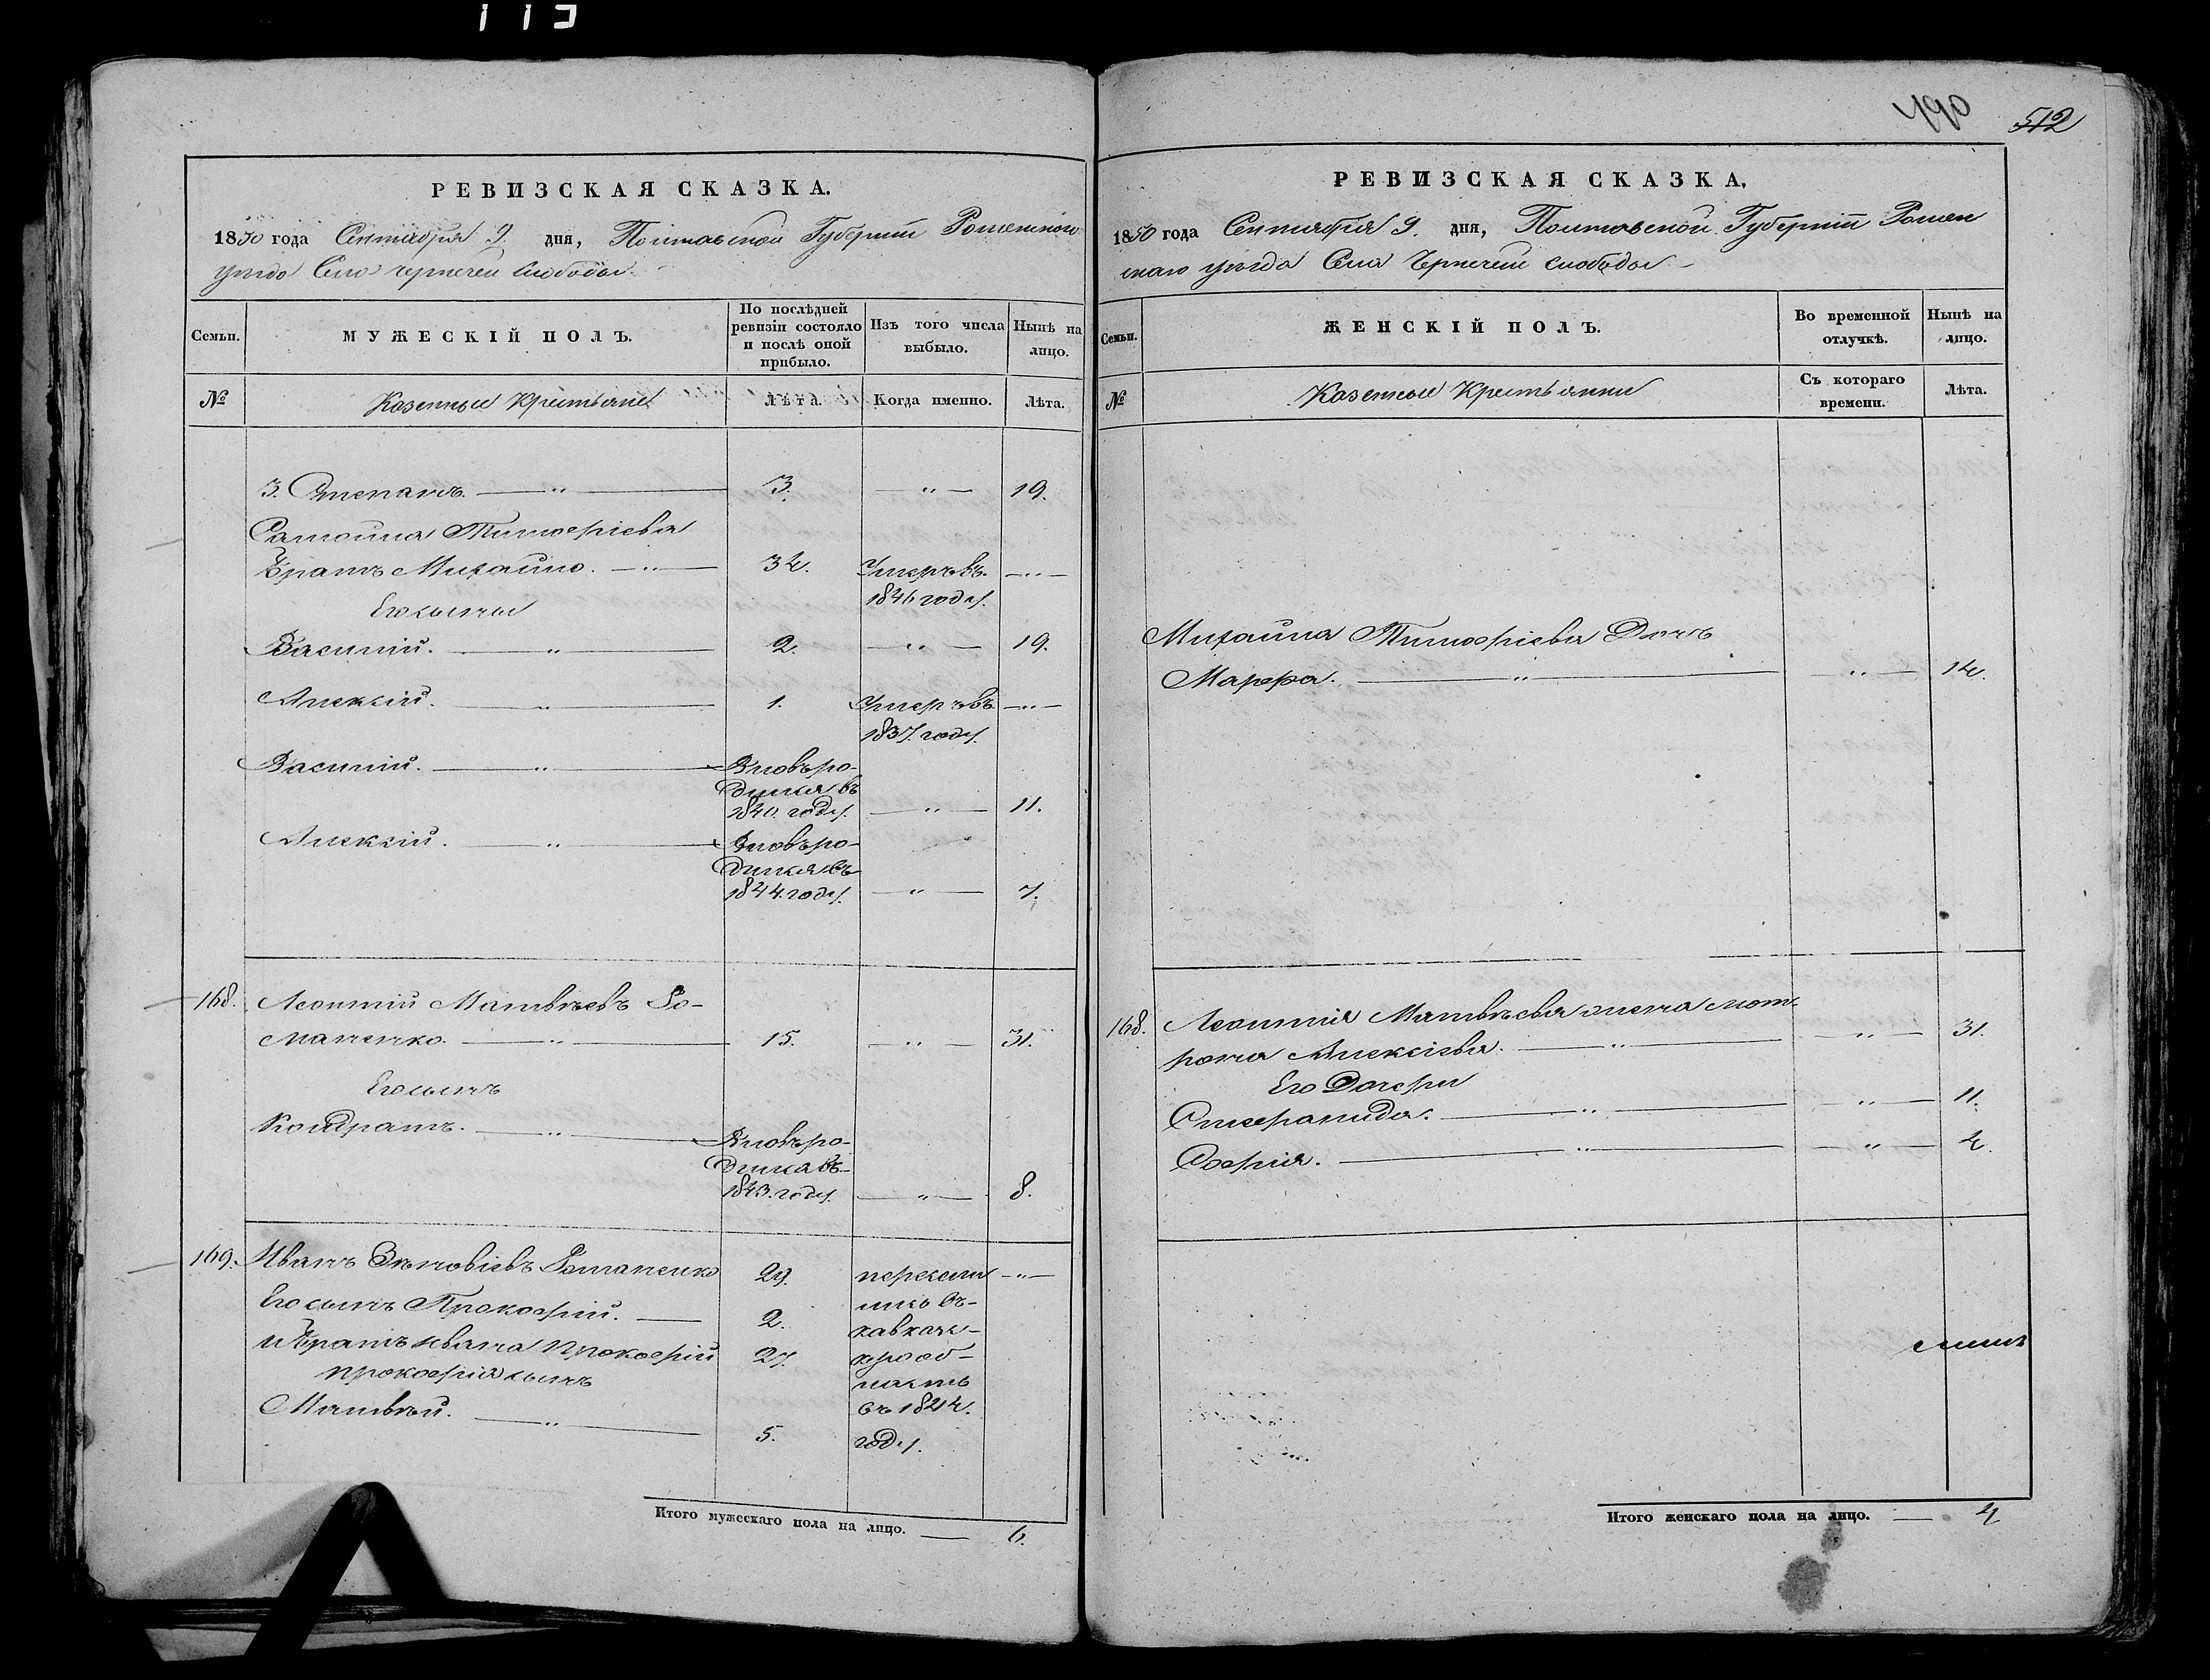 490 512
РЕВИЗСКАЯ СКАЗКА.
1850 года Сентября 9. дня, Полтавской Губерніи Роменского
уезда Села Чернечей Слободы
Семьи. МУЖЕСКІЙ ПОЛЪ. По послѣдней ревизіи состояло и послѣ оной прибыло. Изъ того числа выбыло. Нынѣ на лицо.
№ Казенные Крестьяне Лѣта. Когда именно. Лѣта.
3. Степанъ. — " — 3. — " — 19.
Самойла Тимофіева
Братъ Михайло. — " — 32. Умеръ въ — " —
1846 году.
Его сыны
Василій. — " — 2. — " — 19.
Алексій. — " — 1. Умеръ въ — " —
1837. году.
Василій. — " — Вновь ро-
дился въ
1840. году. — " — 11.
Алексій. — " — Вновь ро-
дился въ
1844. году. — " — 7.
168. Леонтій Матвѣевъ Ро-
маненко. — " — 15. — " — 31.
Его сынъ
Кондратъ. — " — Вновь ро-
дился въ
1843. году. — " — 8.
169. Иванъ Зѣновіевъ Романенко 29. пересели — " —
Его сынъ Прокофій. — 2. лись въ
кавказ-
Братъ Ивана Прокофій 27. кую об-
Прокофія сынъ ласть
Матвѣй. — " — 5. въ 1844.
году.
Итого мужескаго пола на лицо. — 6.
РЕВИЗСКАЯ СКАЗКА.
1850 года Сентября 9. дня, Полтавской Губерніи Ромен
скаго уезда Села Чернечей слободы —
Семьи. ЖЕНСКІЙ ПОЛЪ. Во временной отлучкѣ. Нынѣ на лицо.
№ Казенные Крестьянки Съ котораго времени. Лѣта.
Михайла Тимофіева Дочь
Марфа. — " — — " — 14.
168. Леонтія Матвѣева жена Мот-
рона Алексіева. — " — — " — 31.
Его Дочери
Степанида. — " — — " — 11.
Софія. — " — — " — 2.
Итого женскаго пола на лицо. — 4